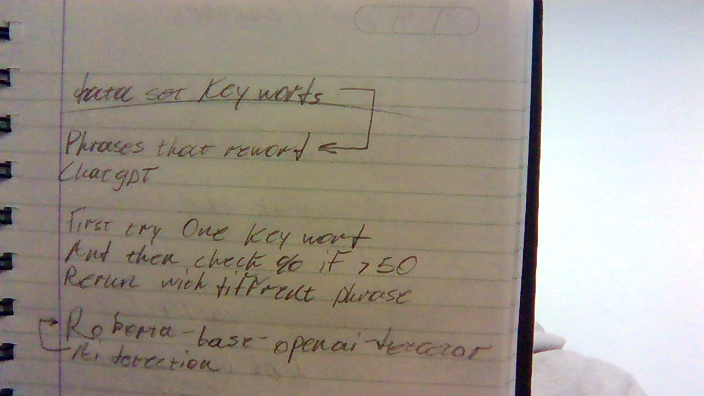 data set Key words
Phrases that reword
Chatgpt
First try One Key word
And then check % if >50
Rerun with different phrase
Roberta-base-openai-detector
Ai detection